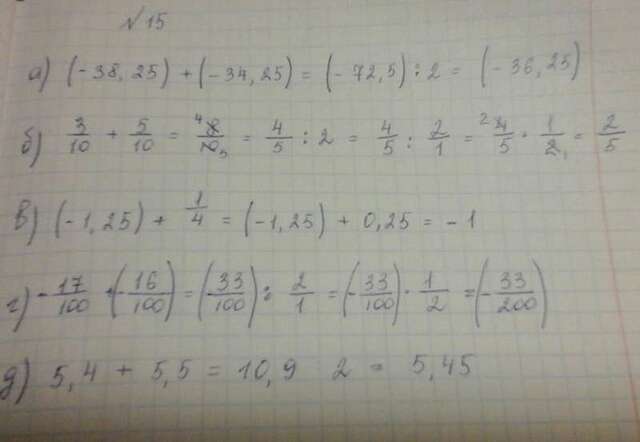 №15
а) (-38,25) + (-34,25) = (-72,5) : 2 = (-36,25)
б) 3/10 + 5/10 = 8/10 = 4/5 : 2 = 4/5 : 2/1 = 4/5 · 1/2 = 2/5
в) (-1,25) + 1/4 = (-1,25) + 0,25 = -1
г) -17/100 + (-16/100) = (-33/100) : 2/1 = (-33/100) · 1/2 = (-33/200)
д) 5,4 + 5,5 = 10,9 2 = 5,45